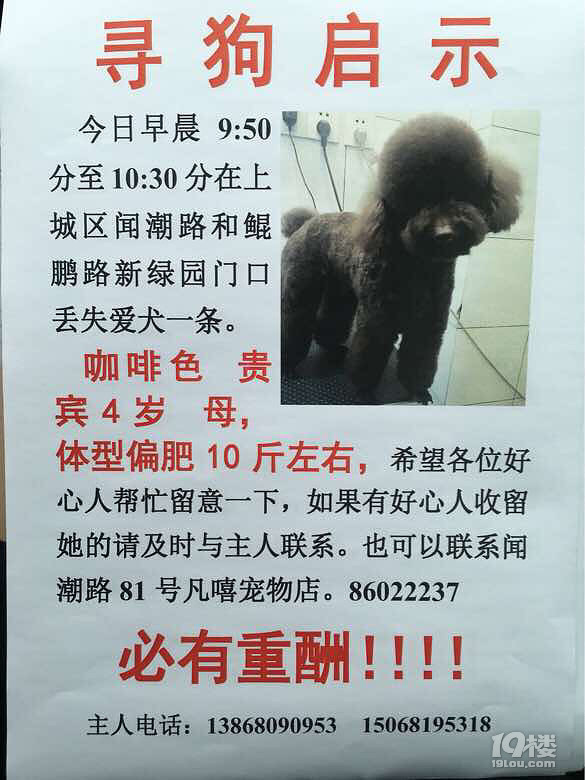 寻狗启示
今日早晨 9:50
分至10:30分在上
城区闻潮路和鲲
鹏路新绿园门口
丢失爱犬一条。
咖啡色 贵
宾4岁 母,
体型偏肥10斤左右，希望各位好
心人帮忙留意一下，如果有好心人收留
她的请及时与主人联系。也可以联系闻
潮路81号凡嘻宠物店。86022237
必有重酬!!!!
主人电话：13868090953 15068195318
19楼
19lou.com